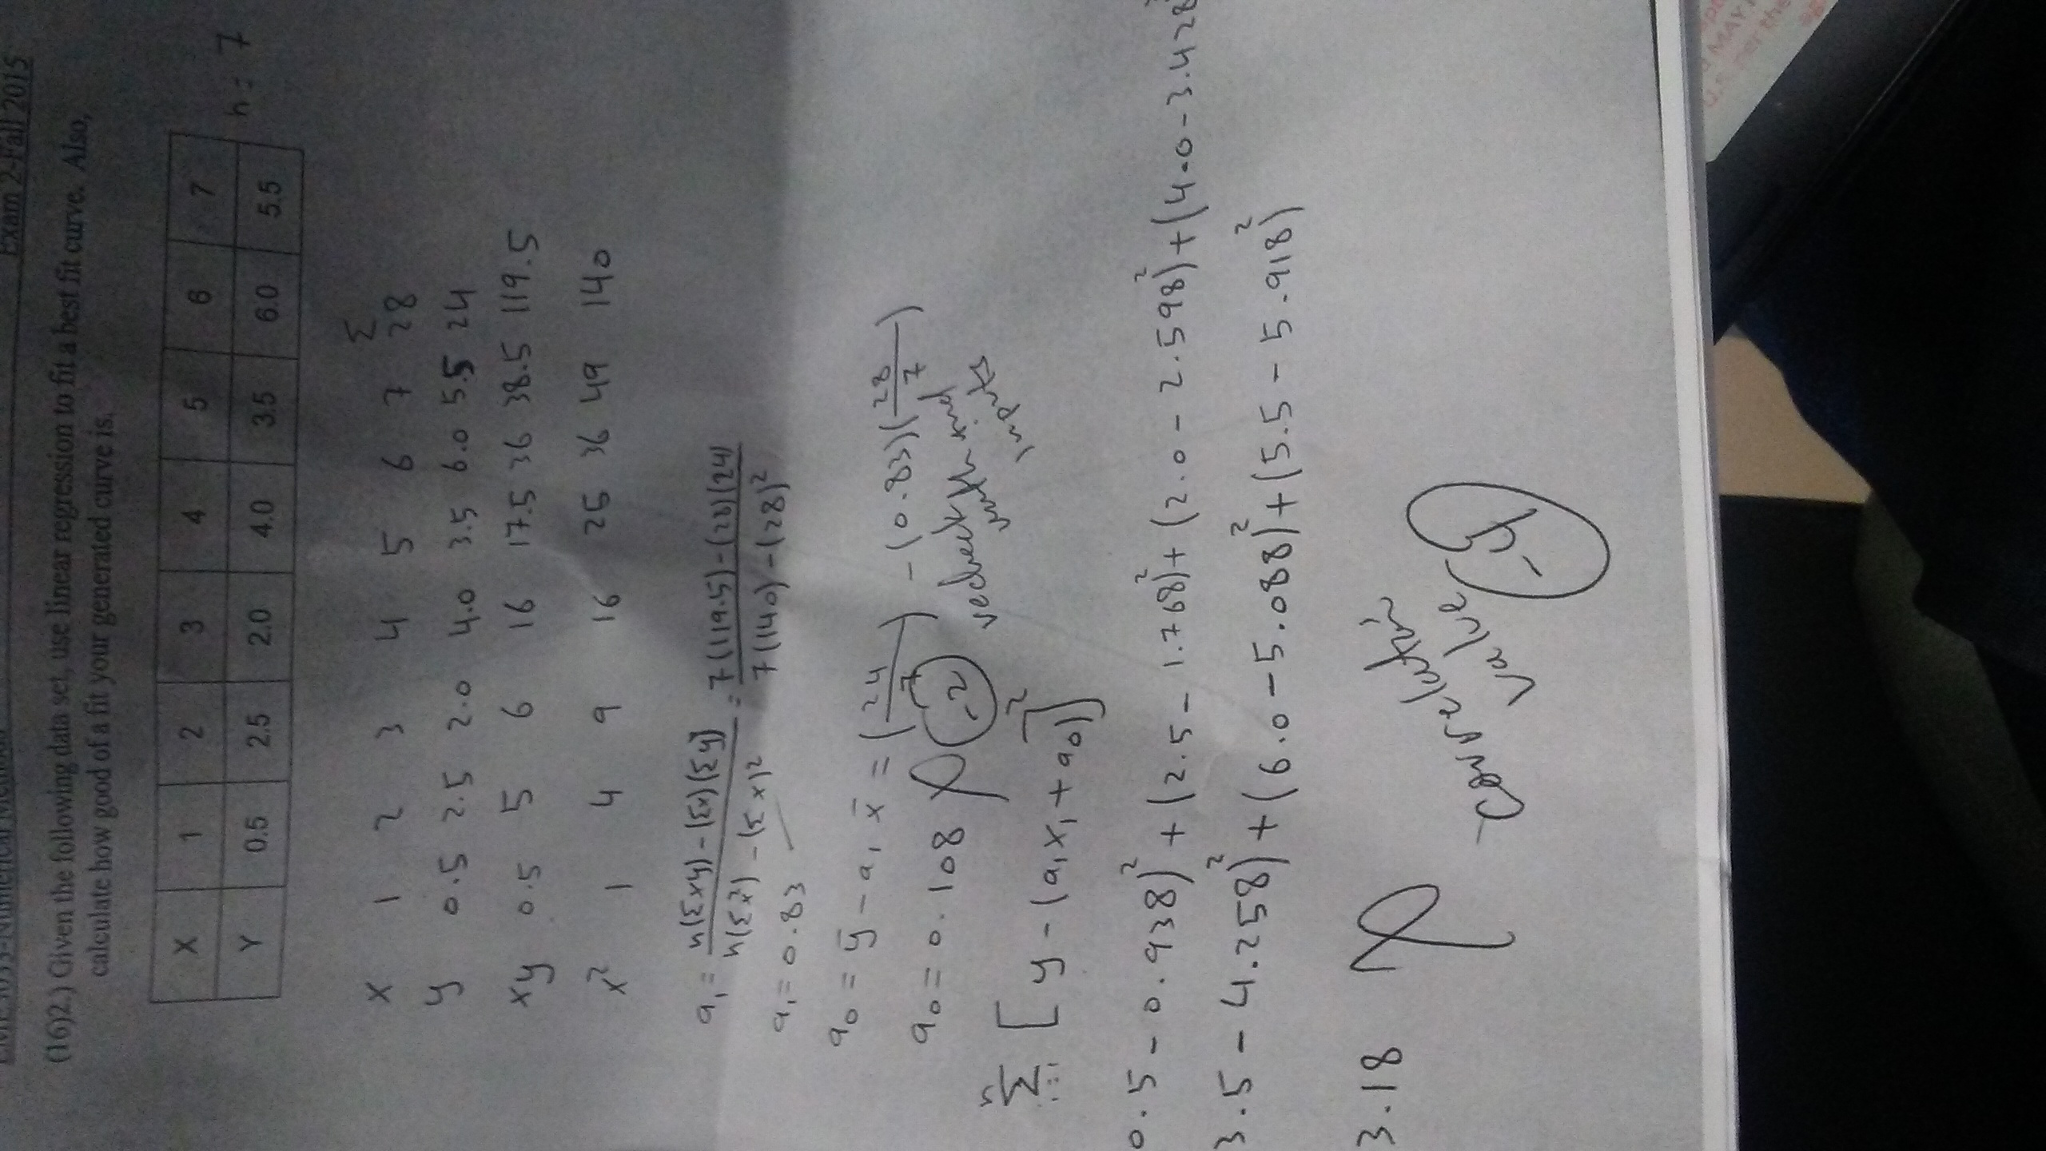 Exam 2-Fall 2015
(16)2.) Given the following data set, use linear regression to fit a best fit curve. Also,
calculate how good of a fit your generated curve is.
X 1 2 3 4 5 6 7
Y 0.5 2.5 2.0 4.0 3.5 6.0 5.5
n = 7
Σ
x 1 2 3 4 5 6 7 28
y 0.5 2.5 2.0 4.0 3.5 6.0 5.5 24
xy 0.5 5 6 16 17.5 36 38.5 119.5
x² 1 4 9 16 25 36 49 140
a₁ = n(Σxy) - (Σx)(Σy) / n(Σx²) - (Σx)² = 7(119.5) - (28)(24) / 7(140) - (28)²
a₁ = 0.83
a₀ = ȳ - a₁ x̄ = (24/7) - (0.83)(28/7)
a₀ = 0.108 -2 recheck
inputs
Σ [y - (a₁x₁ + a₀)]²
0.5 - 0.938²) + (2.5 - 1.768²) + (2.0 - 2.598²) + (4.0 - 3.428
3.5 - 4.258²) + (6.0 - 5.088²) + (5.5 - 5.918²)
3.18
- correlation
value -4